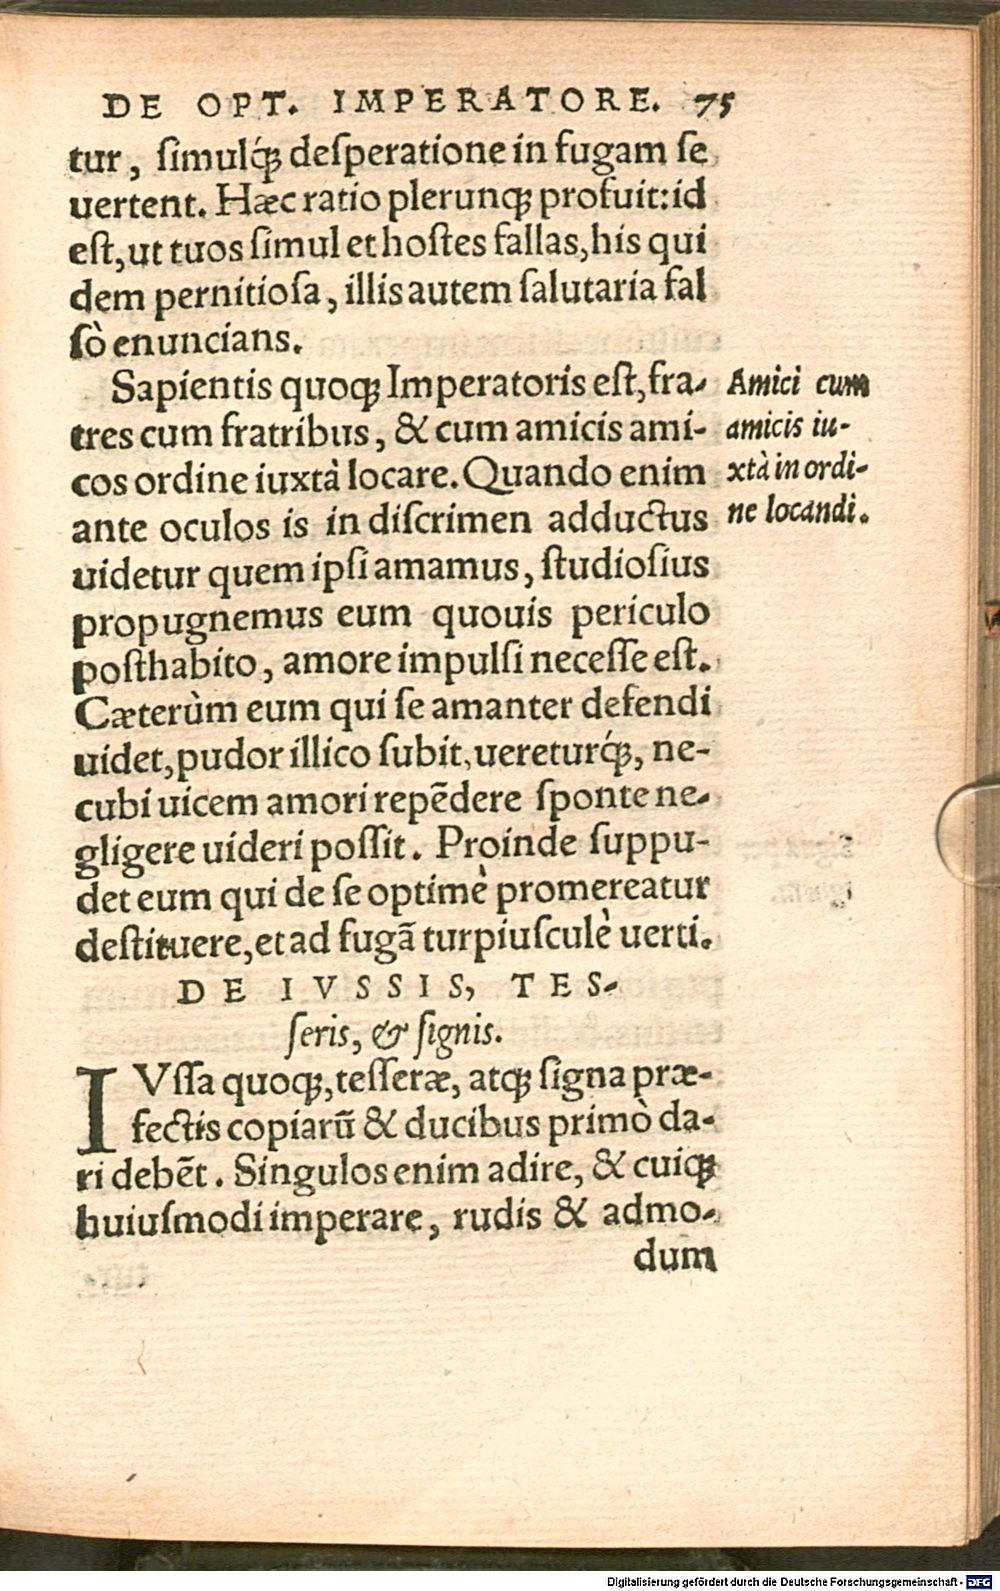 DE OPT. IMPERATORE. 75
tur, simulq́; desperatione in fugam se
uertent. Hæc ratio plerunq; profuit: id
est, ut tuos simul et hostes fallas, his qui
dem pernitiosa, illis autem salutaria fal
sò enuncians.
Sapientis quoq; Imperatoris est, fra-
tres cum fratribus, & cum amicis ami-
cos ordine iuxtà locare. Quando enim
ante oculos is in discrimen adductus
uidetur quem ipsi amamus, studiosius
propugnemus eum quouis periculo
posthabito, amore impulsi necesse est.
Cæterùm eum qui se amanter defendi
uidet, pudor illico subit, uereturq́;, ne-
cubi uicem amori repēdere sponte ne-
gligere uideri possit. Proinde suppu-
det eum qui de se optimè promereatur
destituere, et ad fugā turpiusculè uerti.
Amici cum
amicis iu-
xtà in ordi-
ne locandi.
DE IVSSIS, TES-
seris, & signis.
IVssa quoq;, tesseræ, atq; signa præ-
fectis copiarū & ducibus primò da-
ri debēt. Singulos enim adire, & cuiq;
huiusmodi imperare, rudis & admo-
dum
Digitalisierung gefördert durch die Deutsche Forschungsgemeinschaft - DFG